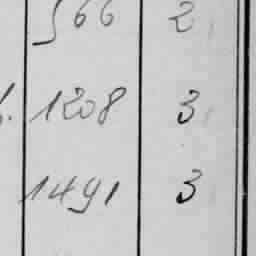 566 2
1208 3
1491 3